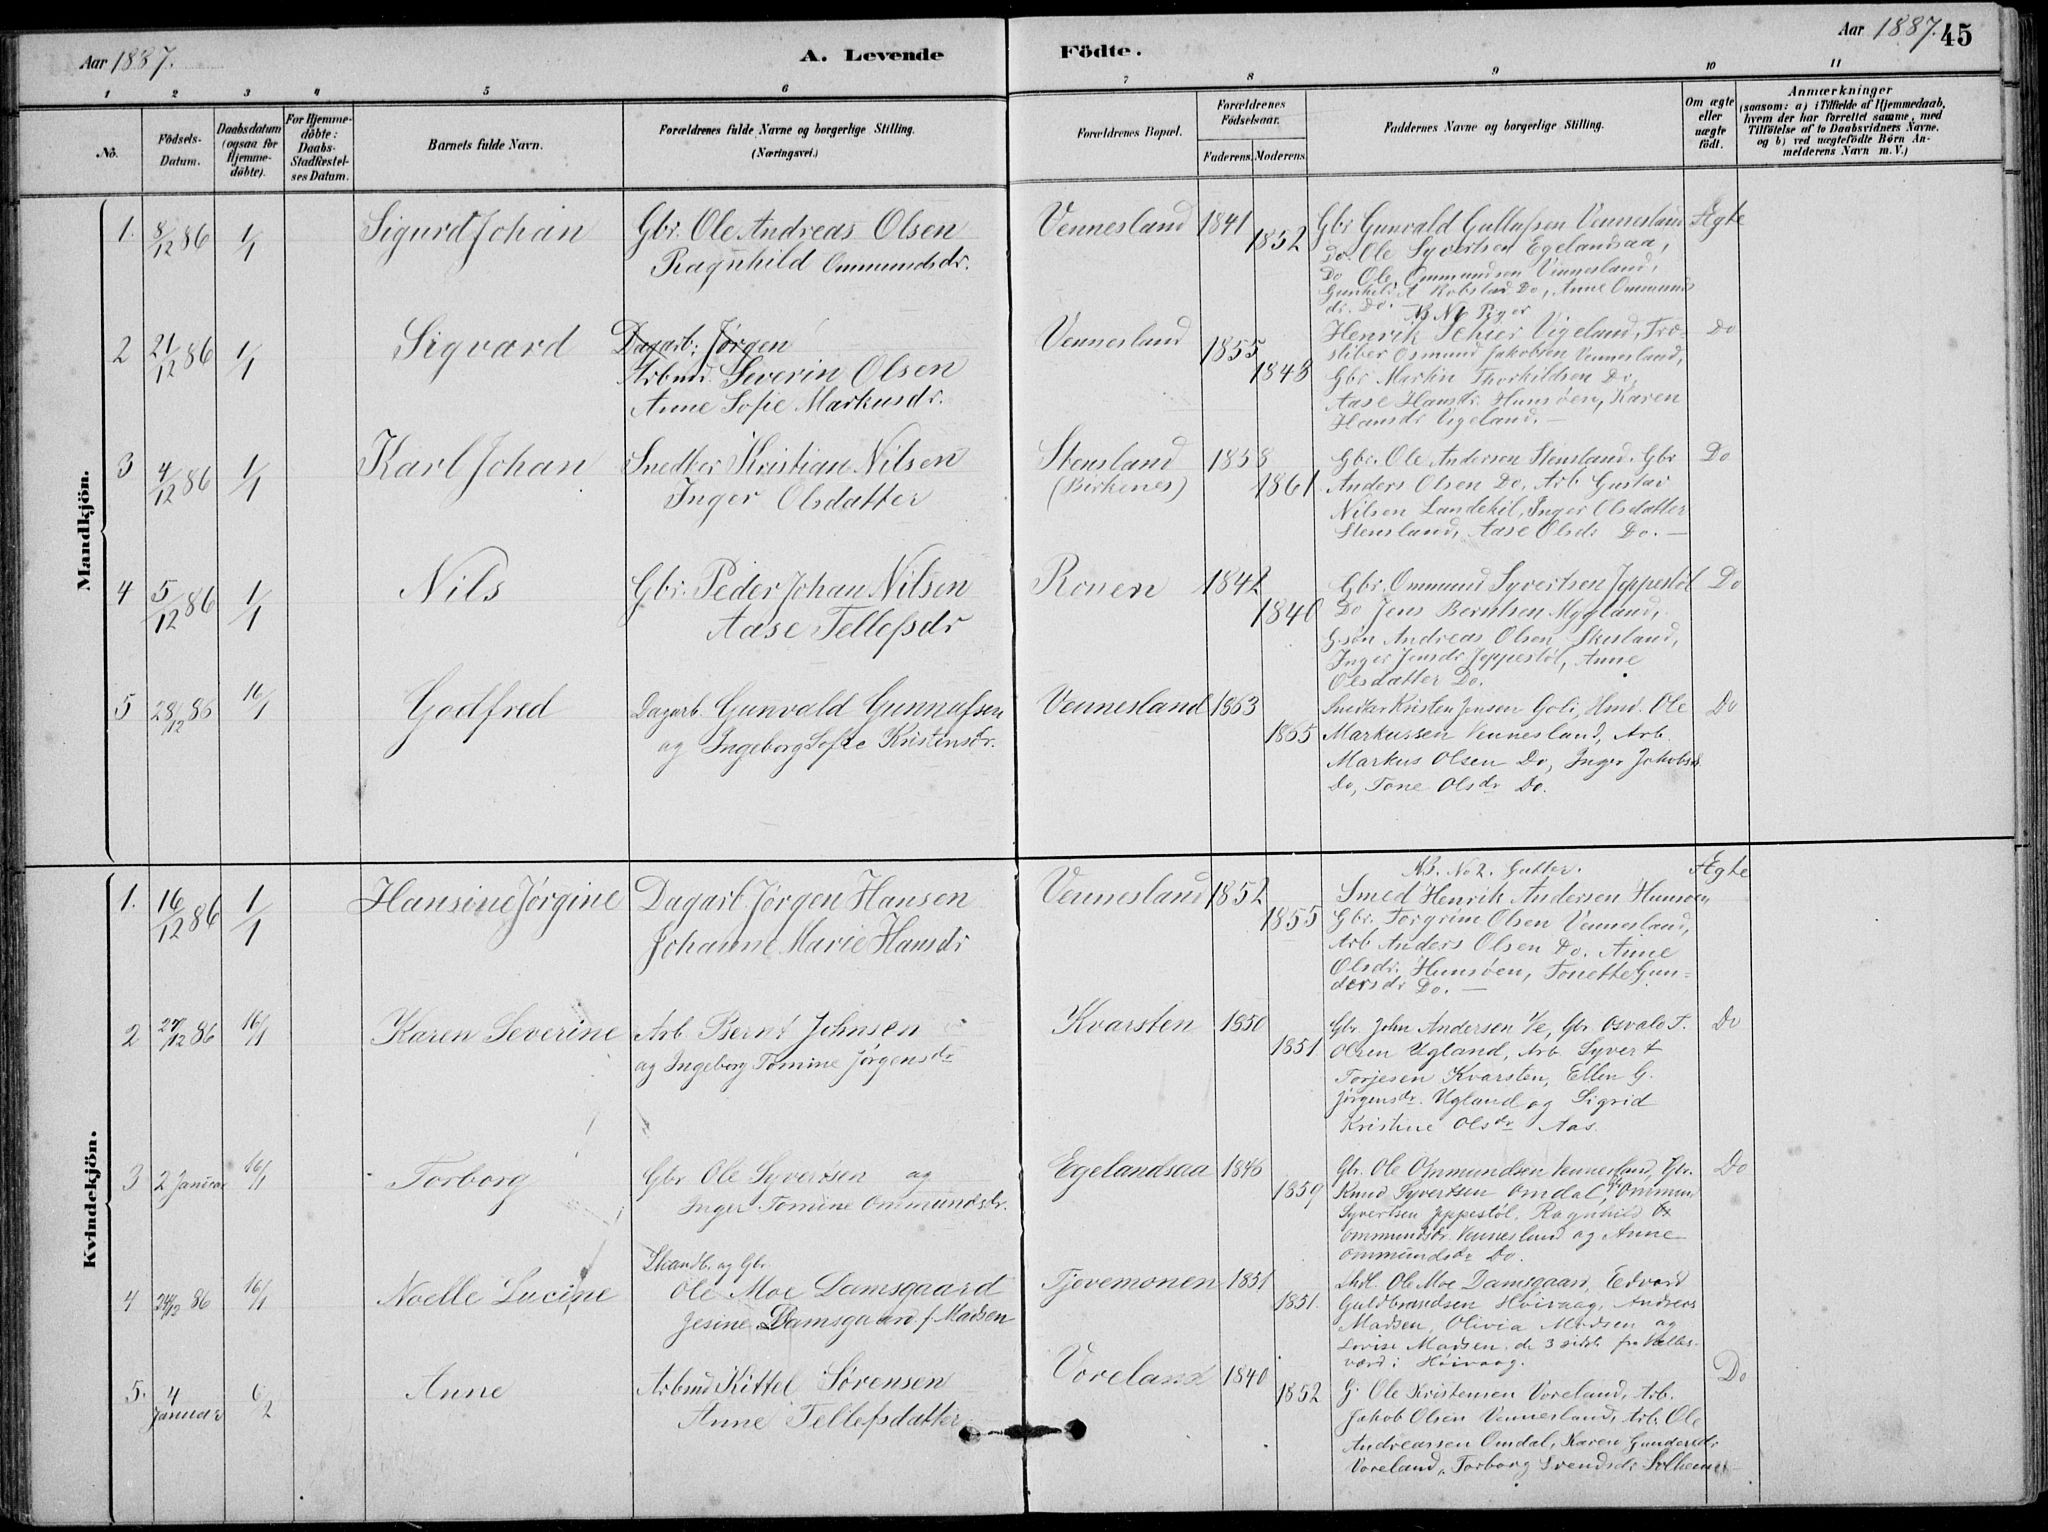 Aar 1887.
A. Levende Födte.
Aar 1887.
45
1 2 3 4 5 6 7 8 9 10 11
No.
Födsels-Datum.
Daabsdatum (ogsaa for Hjemme-döbte).
For Hjemme-döbte: Daabs-Stadfæstel-ses Datum.
Barnets fulde Navn.
Forældrenes fulde Navne og borgerlige Stilling.
(Næringsvei.)
Forældrenes Bopæl.
Forældrenes Födselsaar.
Faderens. Moderens.
Faddernes Navne og borgerlige Stilling.
Om ægte eller uægte födt.
Anmærkninger
(saasom: a) i Tilfælde af Hjemmedaab,
hvem der har forrettet samme, med
Tilföielse af to Daabsvidners Navne.
og b) ved uægtefödte Börn An-
melderens Navn m. V.)
Mandkjön.
1. 8/12 86 1/1 Sigurd Johan Gbr. Ole Andreas Olsen Vennesland 1841 Gbr Gunvald Gullufsen Vennesland Ægte
Ragnhild Ommundsdr. 1852 Do Ole Syvertsen Egelandsaa,
Do Ole Ommundsen Vennesland,
Gunhild A Robstad Do, Anne Ommunds
dr. Do. NB No 1 Piger
2 21/12 86 1/1 Sigvard Dagarb: Jørgen Vennesland 1855 Henrik Vigeland, Træ- Do
Arbmd. Severin Olsen 1848 sliber Osmund Jakobsen Vennesland,
Anne Sofie Markusdr. Gbr Martin Thorkildsen Do,
Aase Hansdr. Hunsøen, Karen
Hansdr Vigeland. —
3 4/12 86 1/1 Karl Johan Snedker Kristian Nilsen Stensland 1858 Gbr. Ole Andersen Stensland. Gbr Do
Inger Olsdatter (Birkenes) 1861 Anders Olsen Do, Arb Gustav
Nilsen Landekil, Inger Olsdatter
Stensland, Aase Olsdr Do. —
4 5/12 86 1/1 Nils Gbr. Peder Johan Nilsen Roven 1842 Gbr. Ommund Syvertsen Jeppestøl Do
Aase Tellefsdr 1840 Do Jens Berntsen Mygland,
Gsøn Andreas Olsen Skusland,
Inger Jensdr Jeppestøl, Anne
Olsdatter Do.
5 28/12 86 16/1 Godfred Dagarb. Gunvald Gunnufsen Vennesland 1863 Snedker Kristen Jensen Goli, Hmd. Ole Do
og Ingeborg Sofie Kristensdr. 1865 Markussen Vennesland, Arb.
Markus Olsen Do, Inger Jakobsdr
Do, Tone Olsdr Do.
Kvindekjön.
NB. No 2. Gutter.
1. 16/12 86 1/1 Hansine Jørgine Dagarb. Jørgen Hansen Vennesland 1852 Smed Henrik Andersen Hunsøen Ægte
Johanne Marie Hansdr 1855 Gbr. Torgrim Olsen Vennesland,
Arb Anders Olsen Do. Anne
Olsdr. Hunsøen, Tonette Gun-
dersdr Do. —
2 27/12 86 16/1 Karen Severine Arb Bernt Johnsen Kvarsten 1850 Gbr. John Andersen Ve, Gbr Osvald T. Do
og Ingeborg Tomine Jørgensdr 1851. Olsen Ugland, Arb. Syvert
Torjesen Kvarsten, Ellen G.
Jørgensdr. Ugland og Sigrid
Kristine Olsdr Aas.
3 2 Januar 16/1 Torborg Gbr Ole Syvertsen og Egelandsaa 1846 Gbr. Ole Ommundsen Vennesland, Gbr. Do
Inger Tomine Ommundsdr. 1859 Knud Syvertsen Omdal, Gbr Ommun
Syvertsen Jeppestøl, Ragnhild
Ommundsdr Vennesland og Anne
Ommundsdr Do.
4 24/12 86 16/1 Noelle Lucine Skandb. og Gbr. Tjevemonen 1851 Ole Moe Damsgaard, Edvard
Ole Moe Damsgaard 1851. Guldbrandsen Høivaag, Andreas
Jesine Damsgaard f. Madsen Madsen, Olivia Madsen og
Lovise Madsen. de 3 sidste fra Valles-
værd i Høivaag.
5. 4 Januar 6/2 Anne Arbmd Kittel Sørensen Voreland 1840 Do
Anne Tellefsdatter 1852 G. Ole Kristensen Voreland, Arb.
Jakob Olsen Vennesland, Arb. Ole
Andreassen Omdal, Karen Gundersdr
Voreland, Torborg Svendsdr